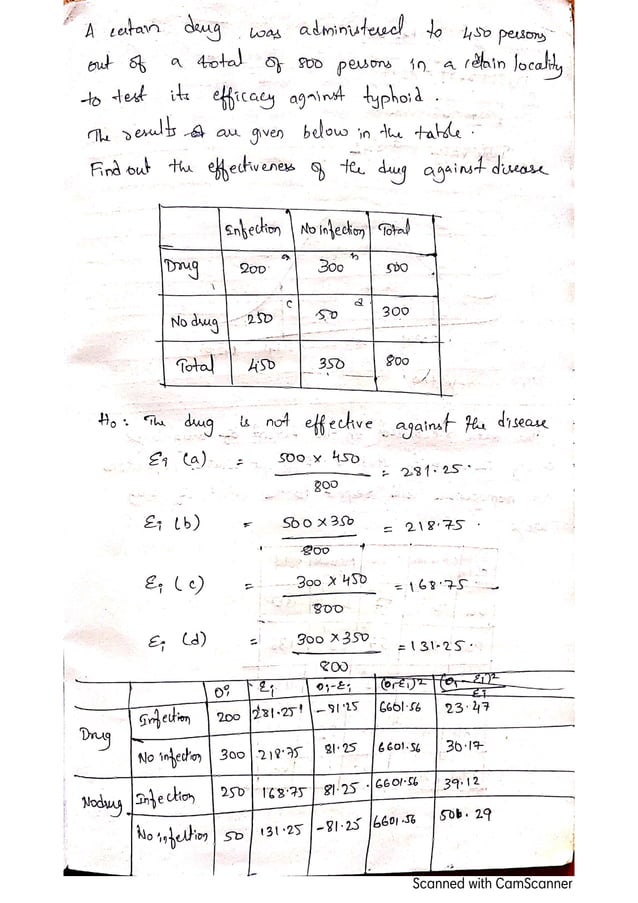 A certain drug was administered to 450 persons
out of a total of 800 persons in a cetain locality
to test its efficacy against typhoid.
The results are given below in the table.
Find out the effectiveness of the drug against disease
Infection No Infection Total
Drug 200 a 300 b 500
No drug 250 c 50 d 300
Total 450 350 800
Ho: The drug is not effective against the disease
Ei (a) = 500 x 450 / 800 = 281.25.
Ei (b) = 500 x 350 / 800 = 218.75.
Ei (c) = 300 x 450 / 800 = 168.75
Ei (d) = 300 x 350 / 800 = 131.25.
Oi Ei Oi-Ei (Oi-Ei)2 (Oi-Ei)2 / Ei
Drug Infection 200 281.25 -81.25 6601.56 23.47
No infection 300 218.75 81.25 6601.56 30.17
No drug Infection 250 168.75 81.25 6601.56 39.12
No infection 50 131.25 -81.25 6601.56 50.29
Scanned with CamScanner